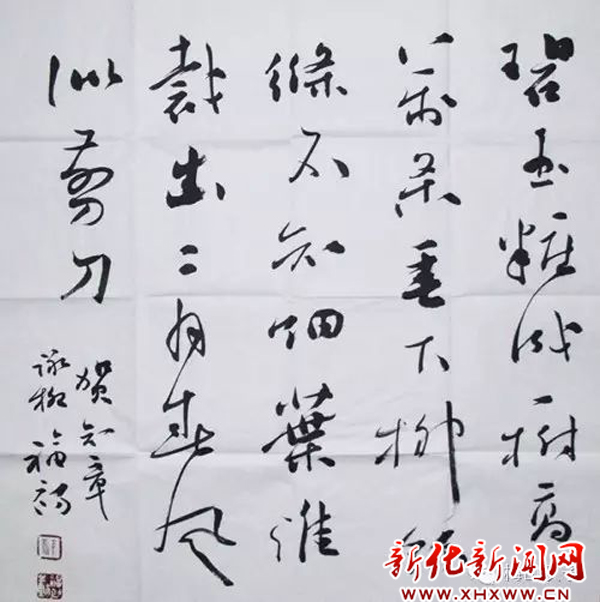 碧玉粧成一樹高
萬条垂下柳絲
絛不知細葉誰
裁出二月春風
似剪刀
賀知章
詠柳 福
新化新闻网
WWW.XHXWW.COM